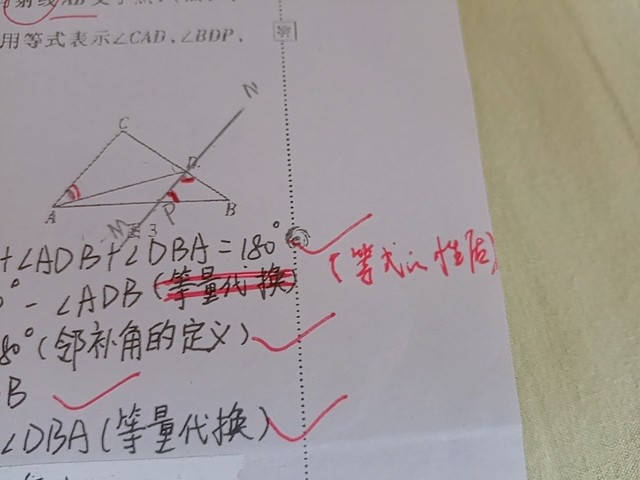 射线AB交于点
用等式表示∠CAD、∠BDP、
密
N
C
D
A
P
B
M
图3
+∠ADB+∠DBA=180°
0°-∠ADB(等量代换) (等式的性质)
80°(邻补角的定义)
B
∠DBA(等量代换)